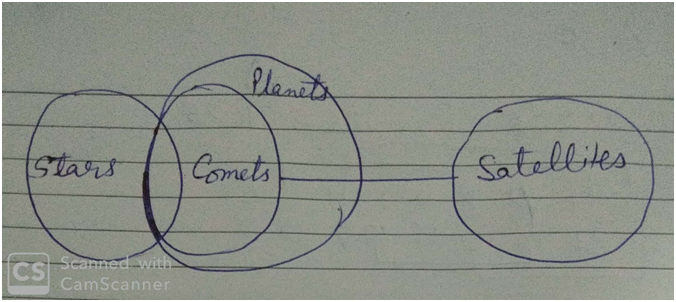 Planets
Stars
Comets
Satellites
CS
Scanned with
CamScanner